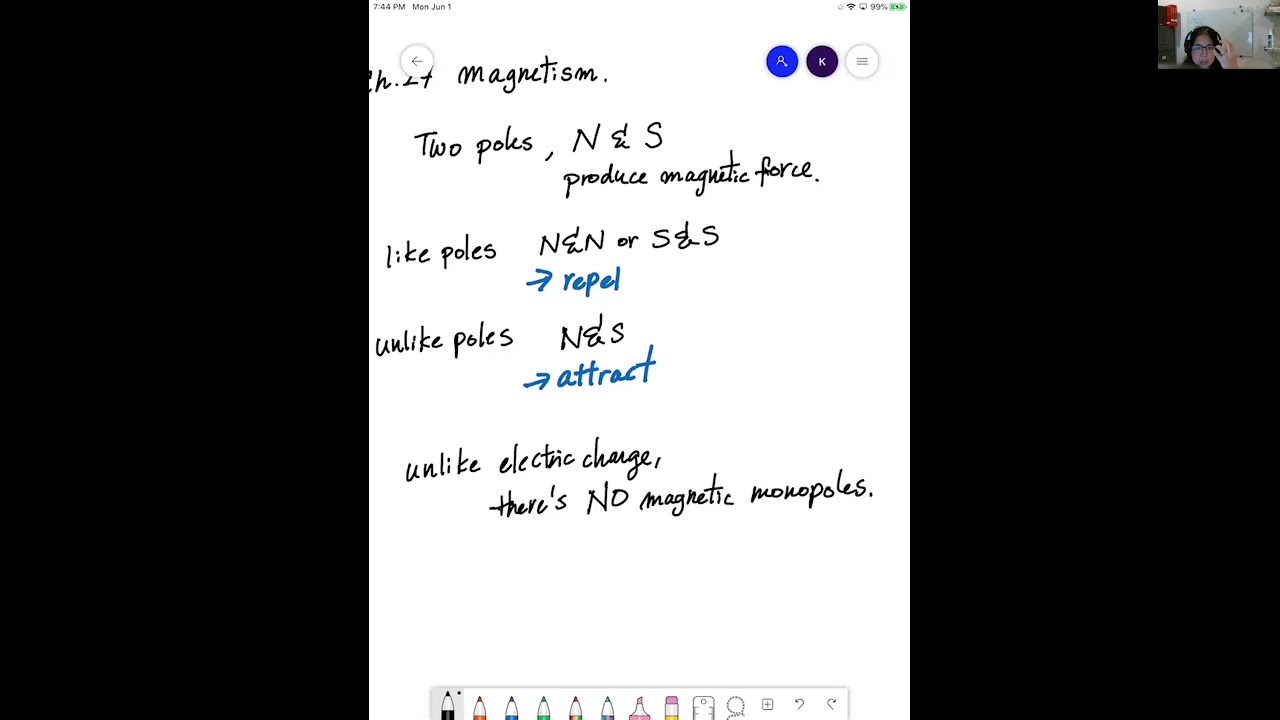 7:44 PM Mon Jun 1
99%
K
magnetism.
Two poles, N & S
produce magnetic force.
like poles N&N or S&S
→ repel
unlike poles N&S
→ attract
unlike electric charge,
there's NO magnetic monopoles.